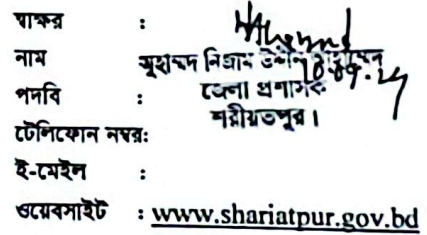 স্বাক্ষর :
নাম মুহাম্মদ নিজাম উদ্দীন
পদবি : জেলা প্রশাসক
শরীয়তপুর।
টেলিফোন নম্বর:
ই-মেইল :
ওয়েবসাইট : www.shariatpur.gov.bd